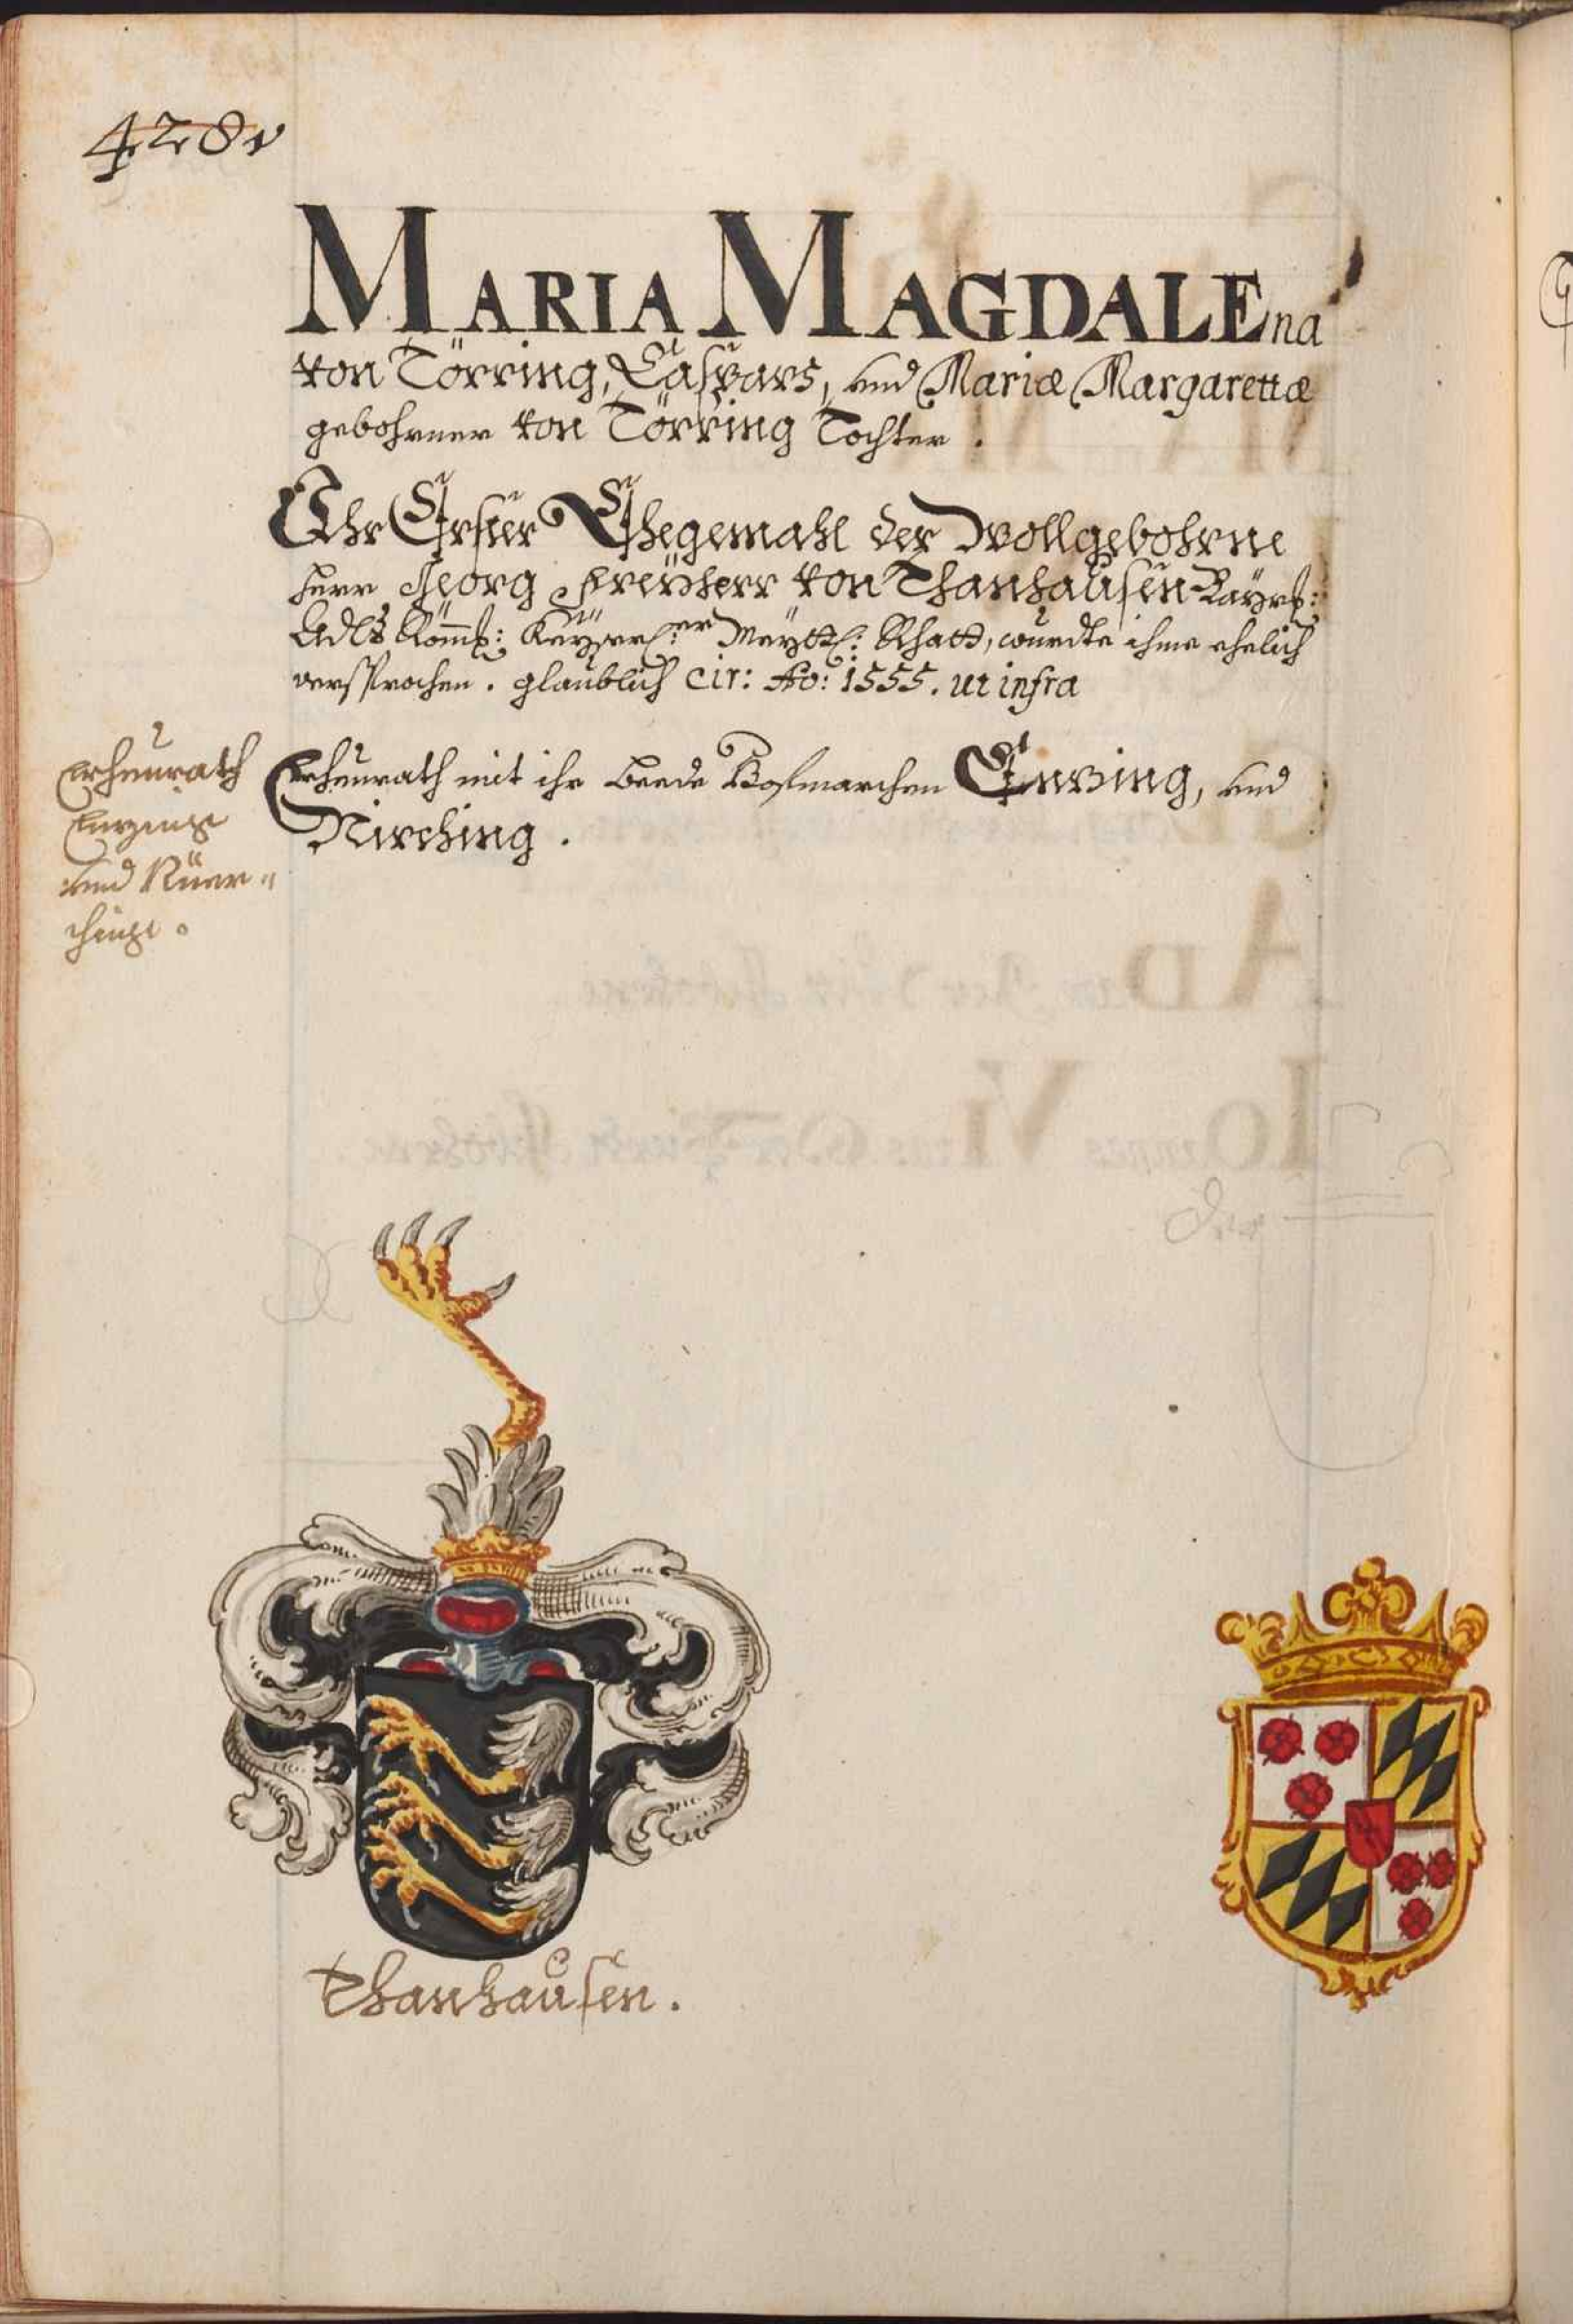 428v
MARIA MAGDALEna
von Törring, Caspars, und Mariæ Margarettæ
gebohrner von Törring Tochter.
Ihr Erster Ehegemahl der Wollgebohrne
Herr Georg Freÿherr von Thanhausen
Römk: Kaÿserl:er Maÿtt: Rhatt, wurdte ihme ehelich
versprochen. glaublich cir: Ao: 1555. ut infra
Erheurath
und
Erheurath mit ihr beede Hofmarchen und
Thanhausen.